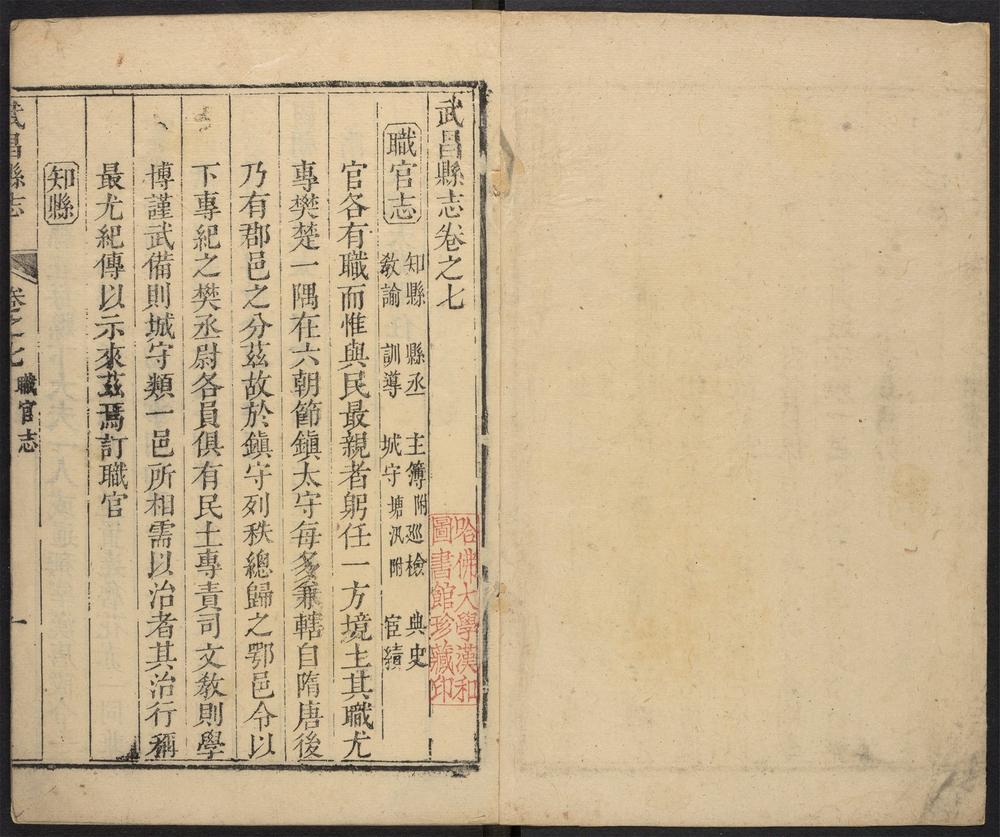 武昌縣志卷之七
職官志
知縣 縣丞 主簿附巡檢 典史
敎諭 訓導 城守塘汛附 宦績
官各有職而惟與民最親者躬任一方境土其職尤
專樊楚一隅在六朝節鎮太守每多兼轄自隋唐後
乃有郡邑之分茲故於鎮守列秩總歸之鄂邑令以
下專紀之樊丞尉各員俱有民土專責司文敎則學
博謹武備則城守類一邑所相需以治者其治行稱
最尤紀傳以示來茲焉訂職官
知縣
武昌縣志
卷之七 職官志 一
哈佛大學漢和
圖書館珍藏印